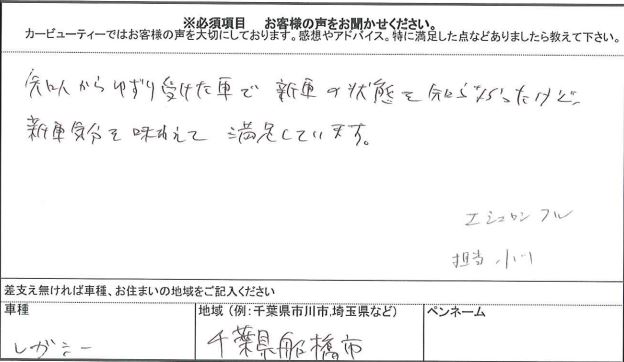 ※必須項目　お客様の声をお聞かせください。
カービューティーではお客様の声を大切にしております。感想やアドバイス。特に満足した点などありましたら教えて下さい。
知人からゆずり受けた車で 新車の状態を知らなかったけど、
新車気分を味わえて 満足しています。
エシュロン フル
担当 小川
差支え無ければ車種、お住まいの地域をご記入ください
車種
地域 (例:千葉県市川市,埼玉県など)
ペンネーム
レガシー
千葉県船橋市